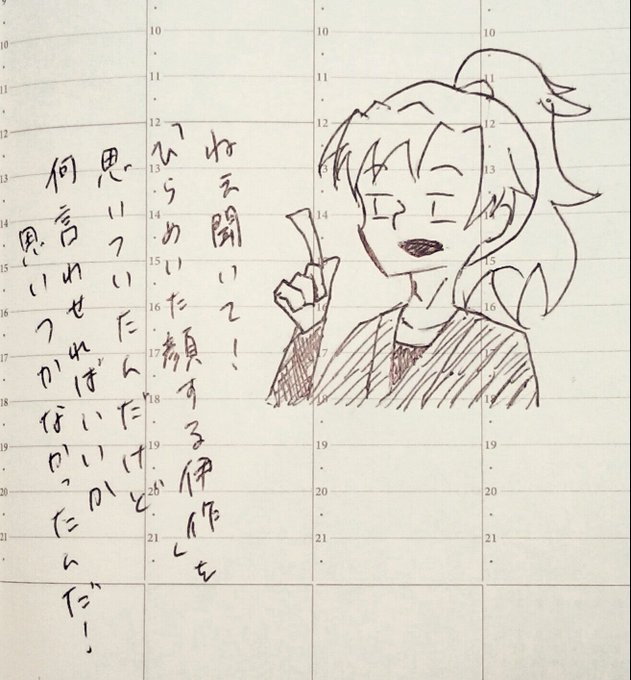 ねえ聞いて！
「ひらめいた顔する伊作」を
思いついたんだけど
何言わせればいいか
思いつかなかったんだ！
10
11
12
13
14
15
16
17
18
19
20
21
10
11
12
13
14
15
16
17
18
19
20
21
10
11
12
13
14
15
16
17
18
19
20
21